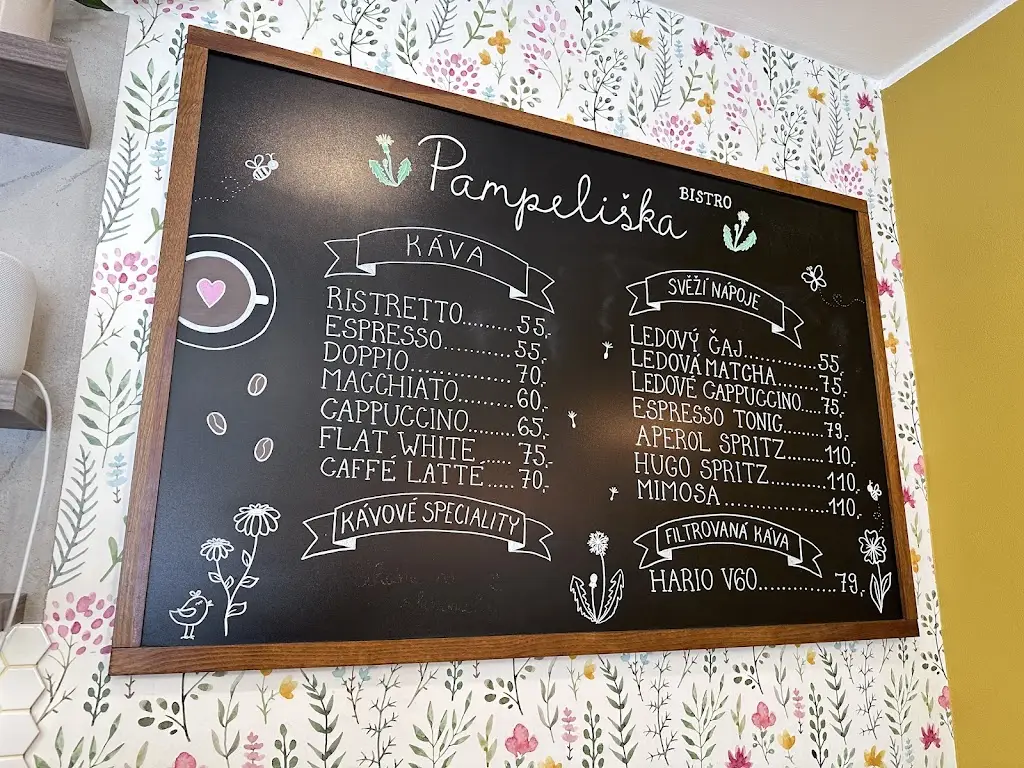 Pampeliška BISTRO
KÁVA
RISTRETTO........ 55,-
ESPRESSO............ 55,-
DOPPIO................ 70,-
MACCHIATO......... 60,-
CAPPUCCINO........ 65,-
FLAT WHITE ..... 75,-
CAFFÉ LATTE ..... 70,-
KÁVOVÉ SPECIALITY
SVĚŽÍ NÁPOJE
LEDOVÝ ČAJ............ 55,-
LEDOVÁ MATCHA....... 75,-
LEDOVÉ CAPPUCCINO.... 75,-
ESPRESSO TONIC....... 79,-
APEROL SPRITZ....... 110,-
HUGO SPRITZ......... 110,-
MIMOSA................ 110,-
FILTROVANÁ KÁVA
HARIO V60............ 79,-